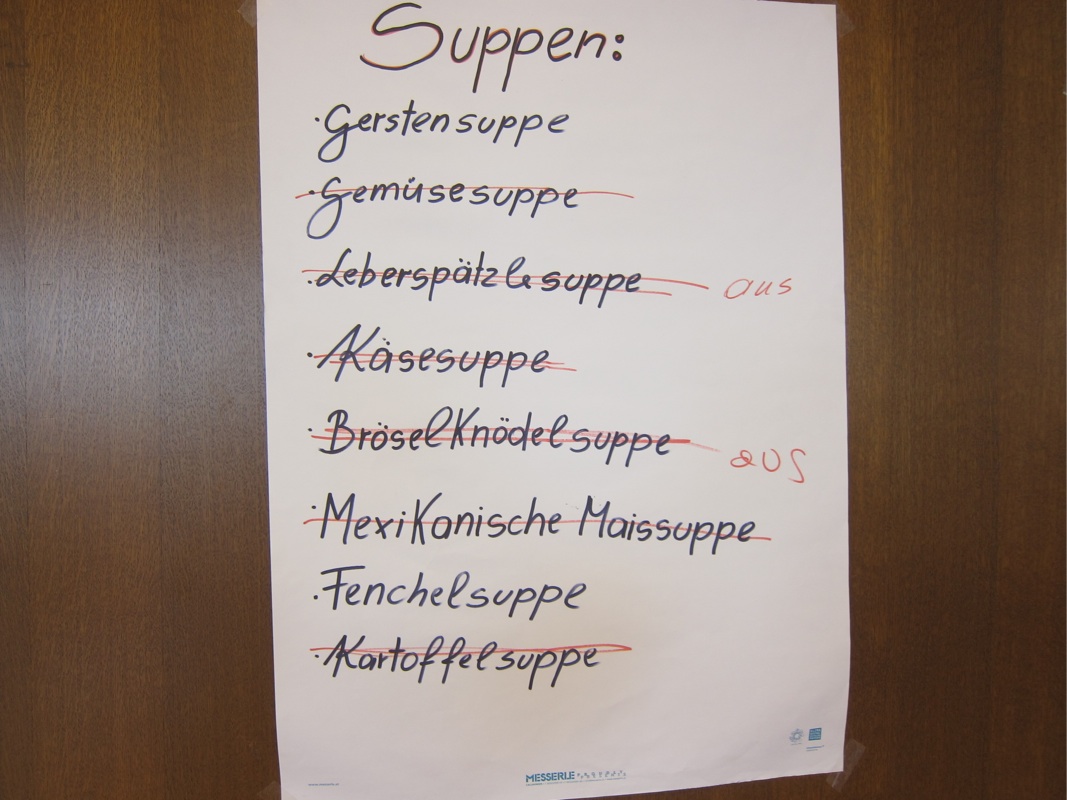 Suppen:
· Gerstensuppe
· Gemüsesuppe
· Leberspätzlesuppe aus
· Käsesuppe
· Bröselknödelsuppe aus
· Mexikanische Maissuppe
· Fenchelsuppe
· Kartoffelsuppe
MESSERLE